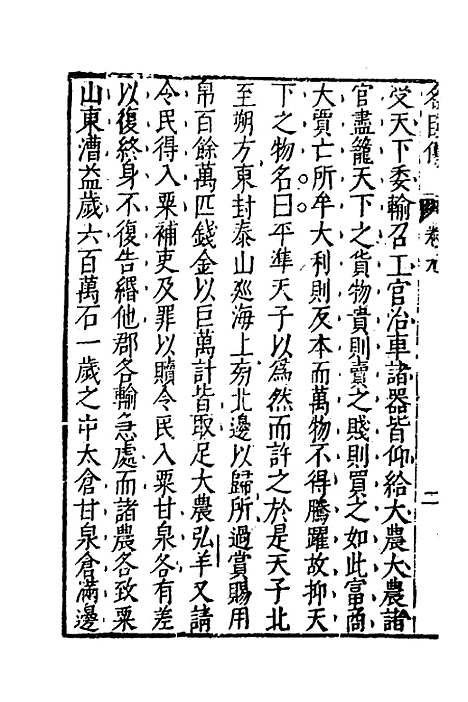 名臣傳 卷九 二
受天下委輸召工官治車諸器皆仰給大農大農諸
官盡籠天下之貨物貴則賣之賤則買之如此富商
大賈亡所牟大利則反本而萬物不得騰躍故抑天
下之物名曰平準天子以為然而許之於是天子北
至朔方東封泰山廵海上旁北邊以歸所過賞賜用
帛百餘萬匹錢金以巨萬計皆取足大農弘羊又請
令民得入粟補吏及罪以贖令民入粟甘泉各有差
以復終身不復告緡他郡各輸急處而諸農各致粟
山東漕益歲六百萬石一歲之中太倉甘泉倉滿邊